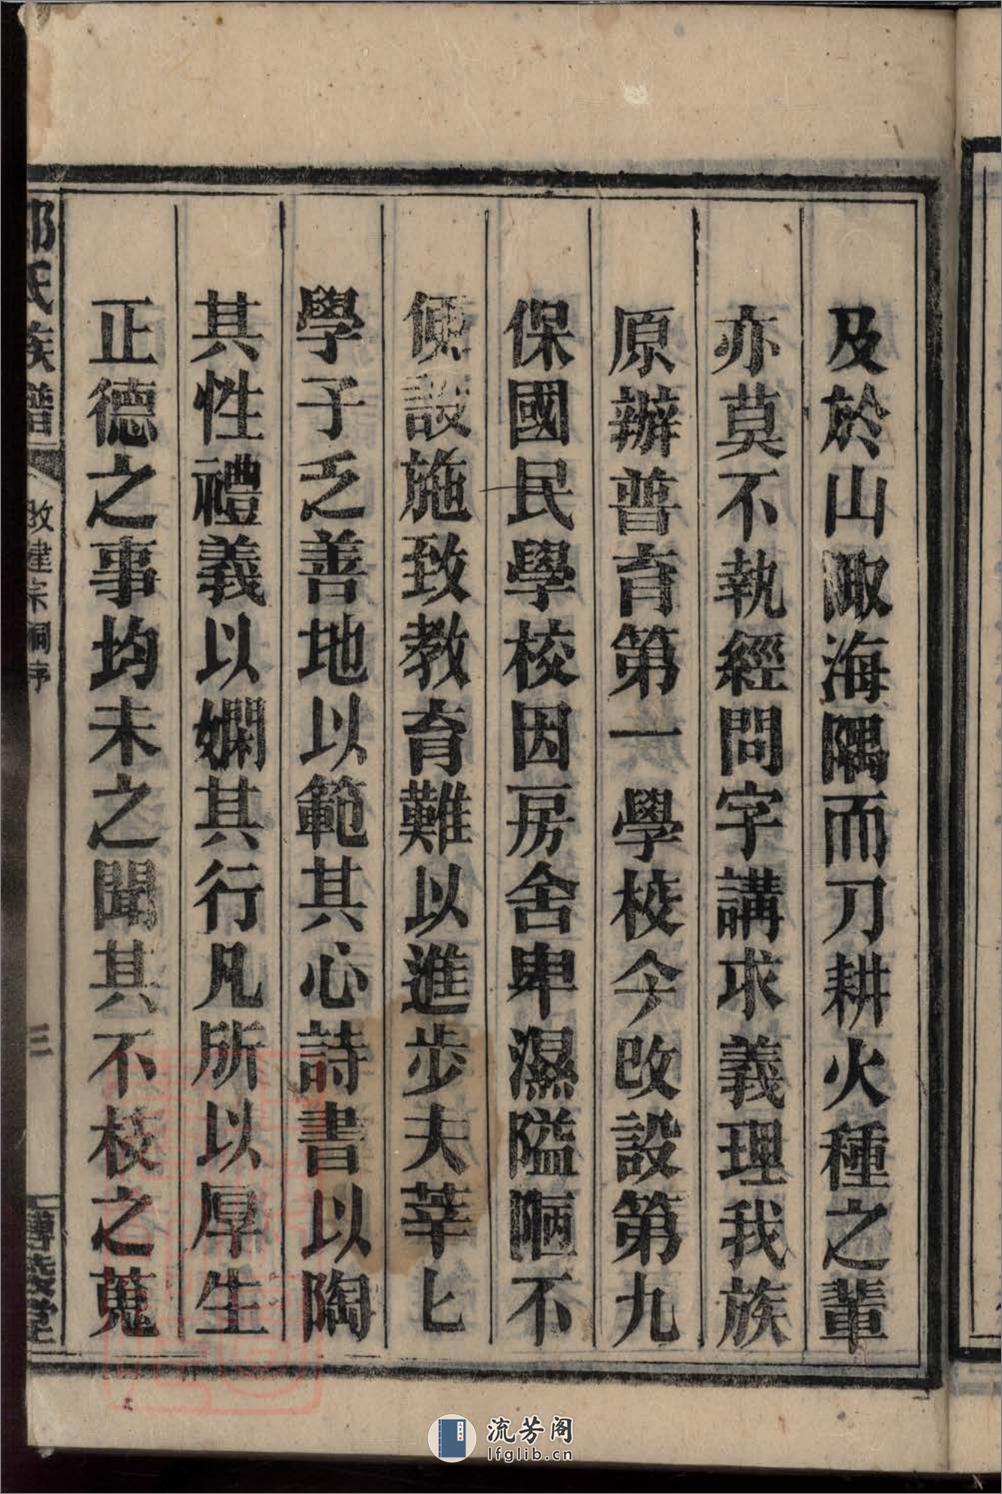 及於山陬海隅而刀耕火種之輩
亦莫不執經問字講求義理我族
原辦普育第一學校今改設第九
保國民學校因房舍卑濕隘陋不
便設施致教育難以進步夫莘七
學子乏善地以範其心詩書以陶
其性禮義以嫻其行凡所以厚生
正德之事均未之聞其不校之蒐
氏族譜
改建宗祠序
三
流芳阁
lfglib.cn